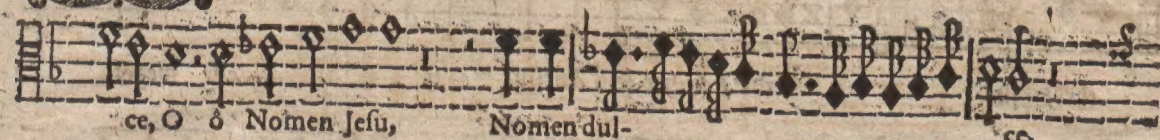 ce, O ô Nomen Jeſu, Nomen dul-
ce,